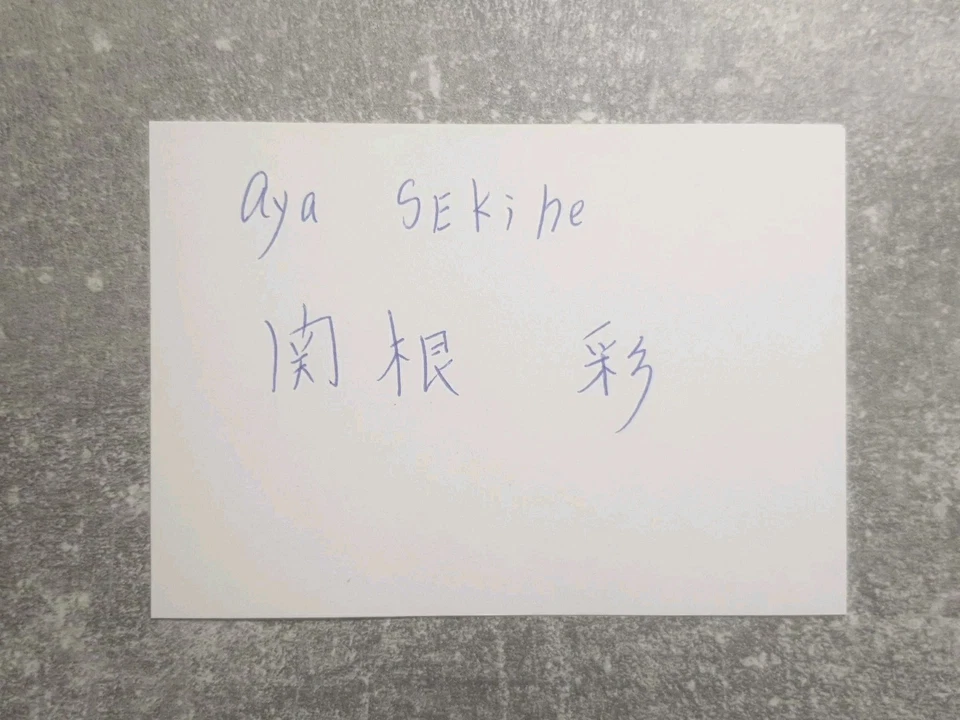 Aya SEkine
関根 彩